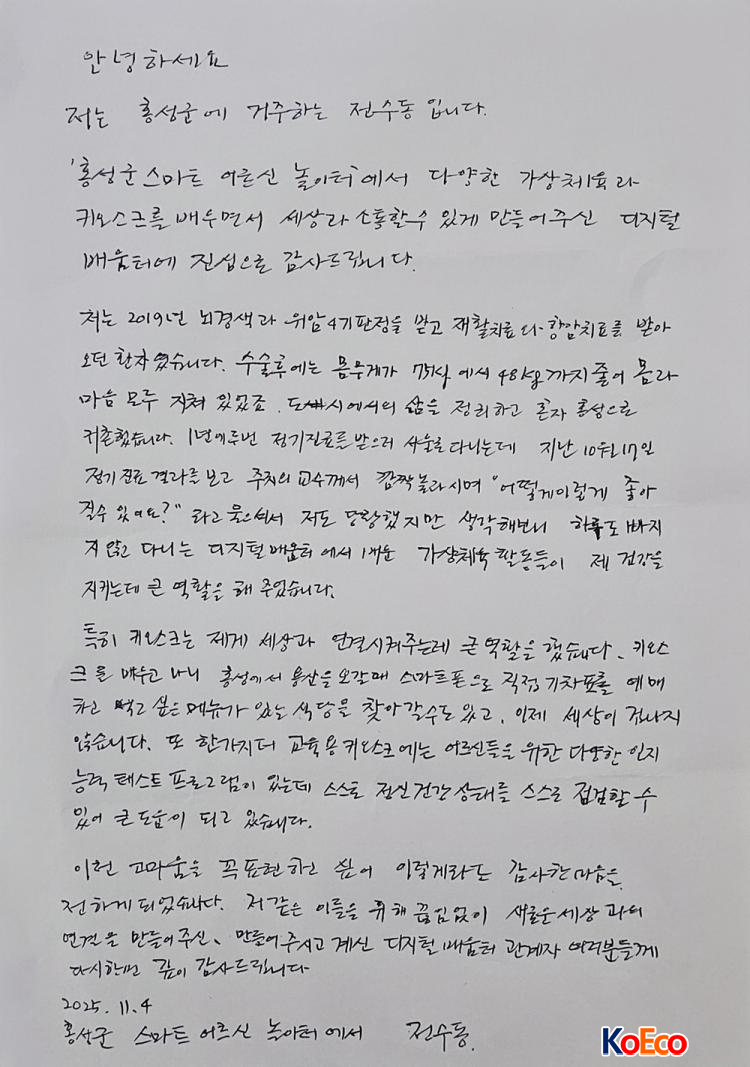 안녕하세요
저는 홍성군에 거주하는 전수동입니다.
'홍성군 스마트 어르신 놀이터'에서 다양한 가상체육과
키오스크를 배우면서 세상과 소통할 수 있게 만들어 주신 디지털
배움터에 진심으로 감사드립니다.
저는 2019년 뇌경색과 위암4기판정을 받고 재활치료와 항암치료를 받아
오던 환자였습니다. 수술후에는 몸무게가 75kg에서 48kg까지 줄어 몸과
마음 모두 지쳐 있었죠. 도시에서의 삶을 정리하고 혼자 홍성으로
귀촌했습니다. 1년에 두번 정기진료를 받으러 서울로 다니는데 지난 10월 17일
정기진료 결과를 보고 주치의 교수께서 깜짝 놀라시며 "어떻게 이렇게 좋아
질수 있어요?" 라고 물으셔서 저도 당황했지만 생각해보니 하루도 빠지
지 않고 다니는 디지털배움터에서 배운 가상체육 활동들이 제 건강을
지키는데 큰 역할을 해 주었습니다.
특히 키오스크는 제게 세상과 연결시켜주는데 큰 역할을 했습니다. 키오스
크를 배우고 나니 홍성에서 용산을 오갈때 스마트폰으로 직접 기차표를 예매
하고 먹고 싶은 메뉴가 있는 식당을 찾아갈수도 있고, 이제 세상이 겁나지
않습니다. 또 한가지더 교육용 키오스크에는 어르신들을 위한 다양한 인지
능력 테스트 프로그램이 있는데 스스로 정신건강 상태를 스스로 점검할 수
있어 큰 도움이 되고 있습니다.
이런 고마움을 꼭 표현하고 싶어 이렇게라도 감사한 마음을
전하게 되었습니다. 저 같은 이들을 위해 끊임없이 새로운 세상과의
연결을 만들어주신, 만들어 주시고 계신 디지털 배움터 관계자 여러분들께
다시한번 깊이 감사드립니다
2025. 11. 4
홍성군 스마트 어르신 놀이터에서 전수동.
KoEco